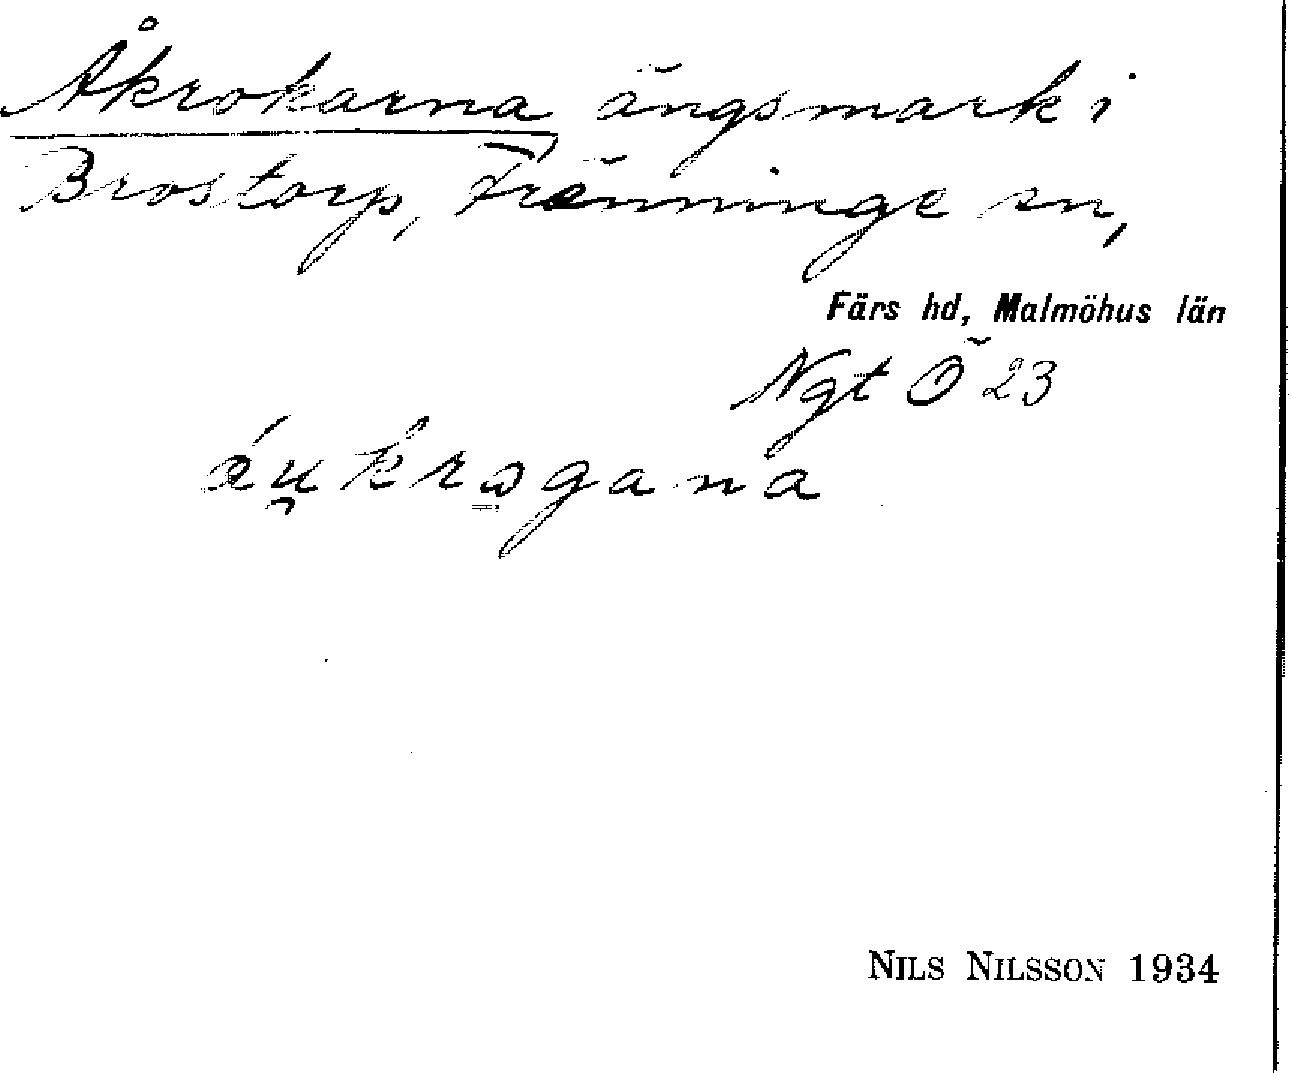 Åkrokarna ängsmark i
Brostorp, Fränninge sn,
Färs hd, Malmöhus län
Ngt Ö 23
áu̯krogana
NILS NILSSON 1934